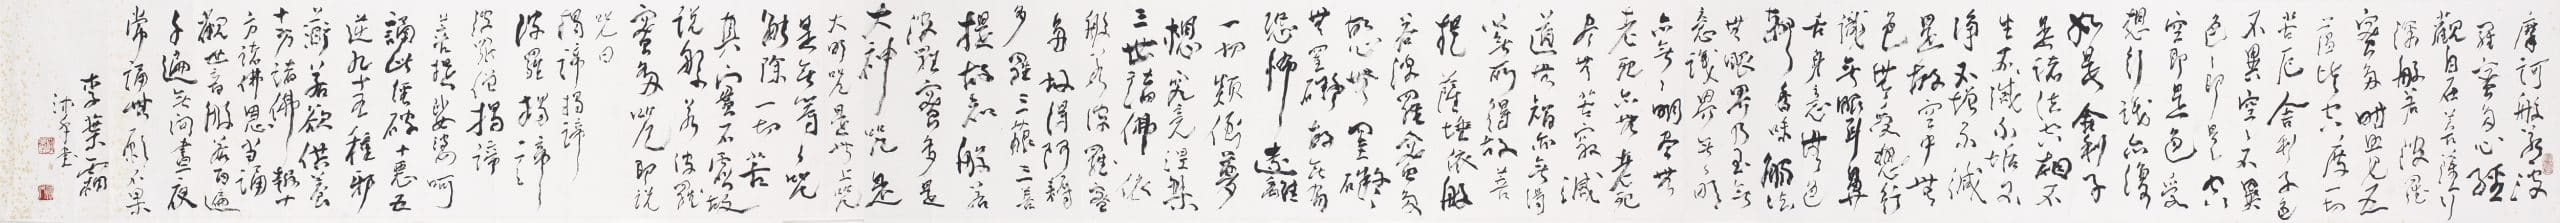 摩訶般若波
羅蜜多心經
觀自在菩薩行
深般若波羅
蜜多時照見五
蘊皆空度一切
苦厄舍利子色
不異空空不異
色色即是空
空即是色受
想行識亦復
如是舍利子
是諸法空相不
生不滅不垢不
淨不增不減
是故空中無
色無受想行
識無眼耳鼻
舌身意無色
聲香味觸法
無眼界乃至無
意識界無無明
亦無無明盡無
老死亦無老死
盡無苦寂滅
道無智亦無得
無所得故菩
提薩埵依般
若波羅蜜多
故心無罣礙
無罣礙故無有
恐怖遠離
一切顛倒夢
想究竟涅槃
三世諸佛依
般若波羅蜜
多故得阿耨
多羅三藐三菩
提故知般若
波羅蜜多是
大神咒是
大明咒是無上咒
是無等等咒
能除一切苦
真實不虛故
說般若波羅
蜜多咒即說
咒曰
揭諦揭諦
波羅揭諦
波羅僧揭諦
菩提娑婆訶
誦此經破十惡五
逆九十五種邪
若欲供養
十方諸佛報十
方諸佛恩當誦
觀世音般若百遍
千遍無間晝夜
常誦無願不果
李葉霜